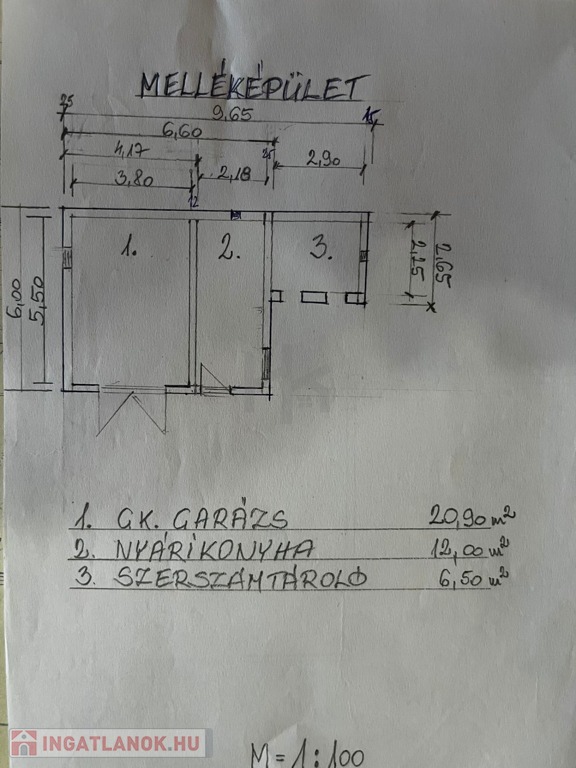 MELLÉKÉPÜLET
25 9,65 15
6,60
4,17 25
3,80 12 2,18 2,90
1. 2. 3.
6,00 5,50 2,25 2,65
1. GK. GARÁZS 20,90 m²
2. NYÁRIKONYHA 12,00 m²
3. SZERSZÁMTÁROLÓ 6,50 m²
INGATLANOK.HU
M = 1:100